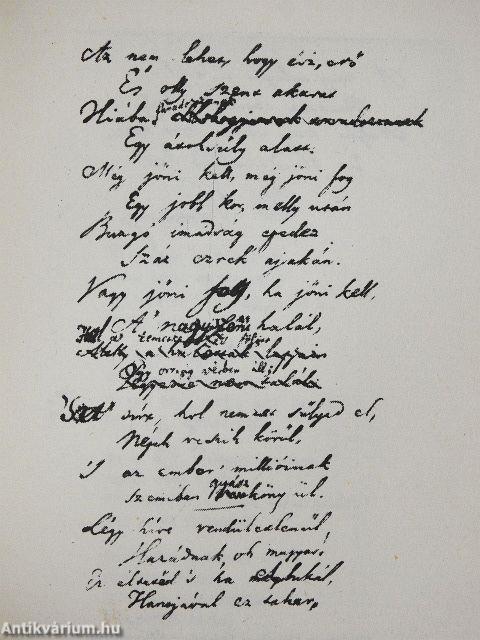 Az nem lehet, hogy ész, erő
És olly szent akarat
Hiába
Egy átoksúly alatt.
Még jőni kell, még jőni fog
Egy jobb kor, melly után
Buzgó imádság epedez
Száz ezrek ajakán.
Vagy jőni fog, ha jőni kell,
A' nagyszerü halál,
Hol a' temetkezés fölött
Egy ország vérben áll;
'S a' sírt, hol nemzet sűlyed el,
Népek veszik körűl,
'S az ember millióinak
Szemében gyász könyű űl.
Légy híve rendűletlenűl
Hazádnak, oh magyar:
Ez éltetőd 's ha elbukál,
Hantjával ez takar,
Antikvárium.hu